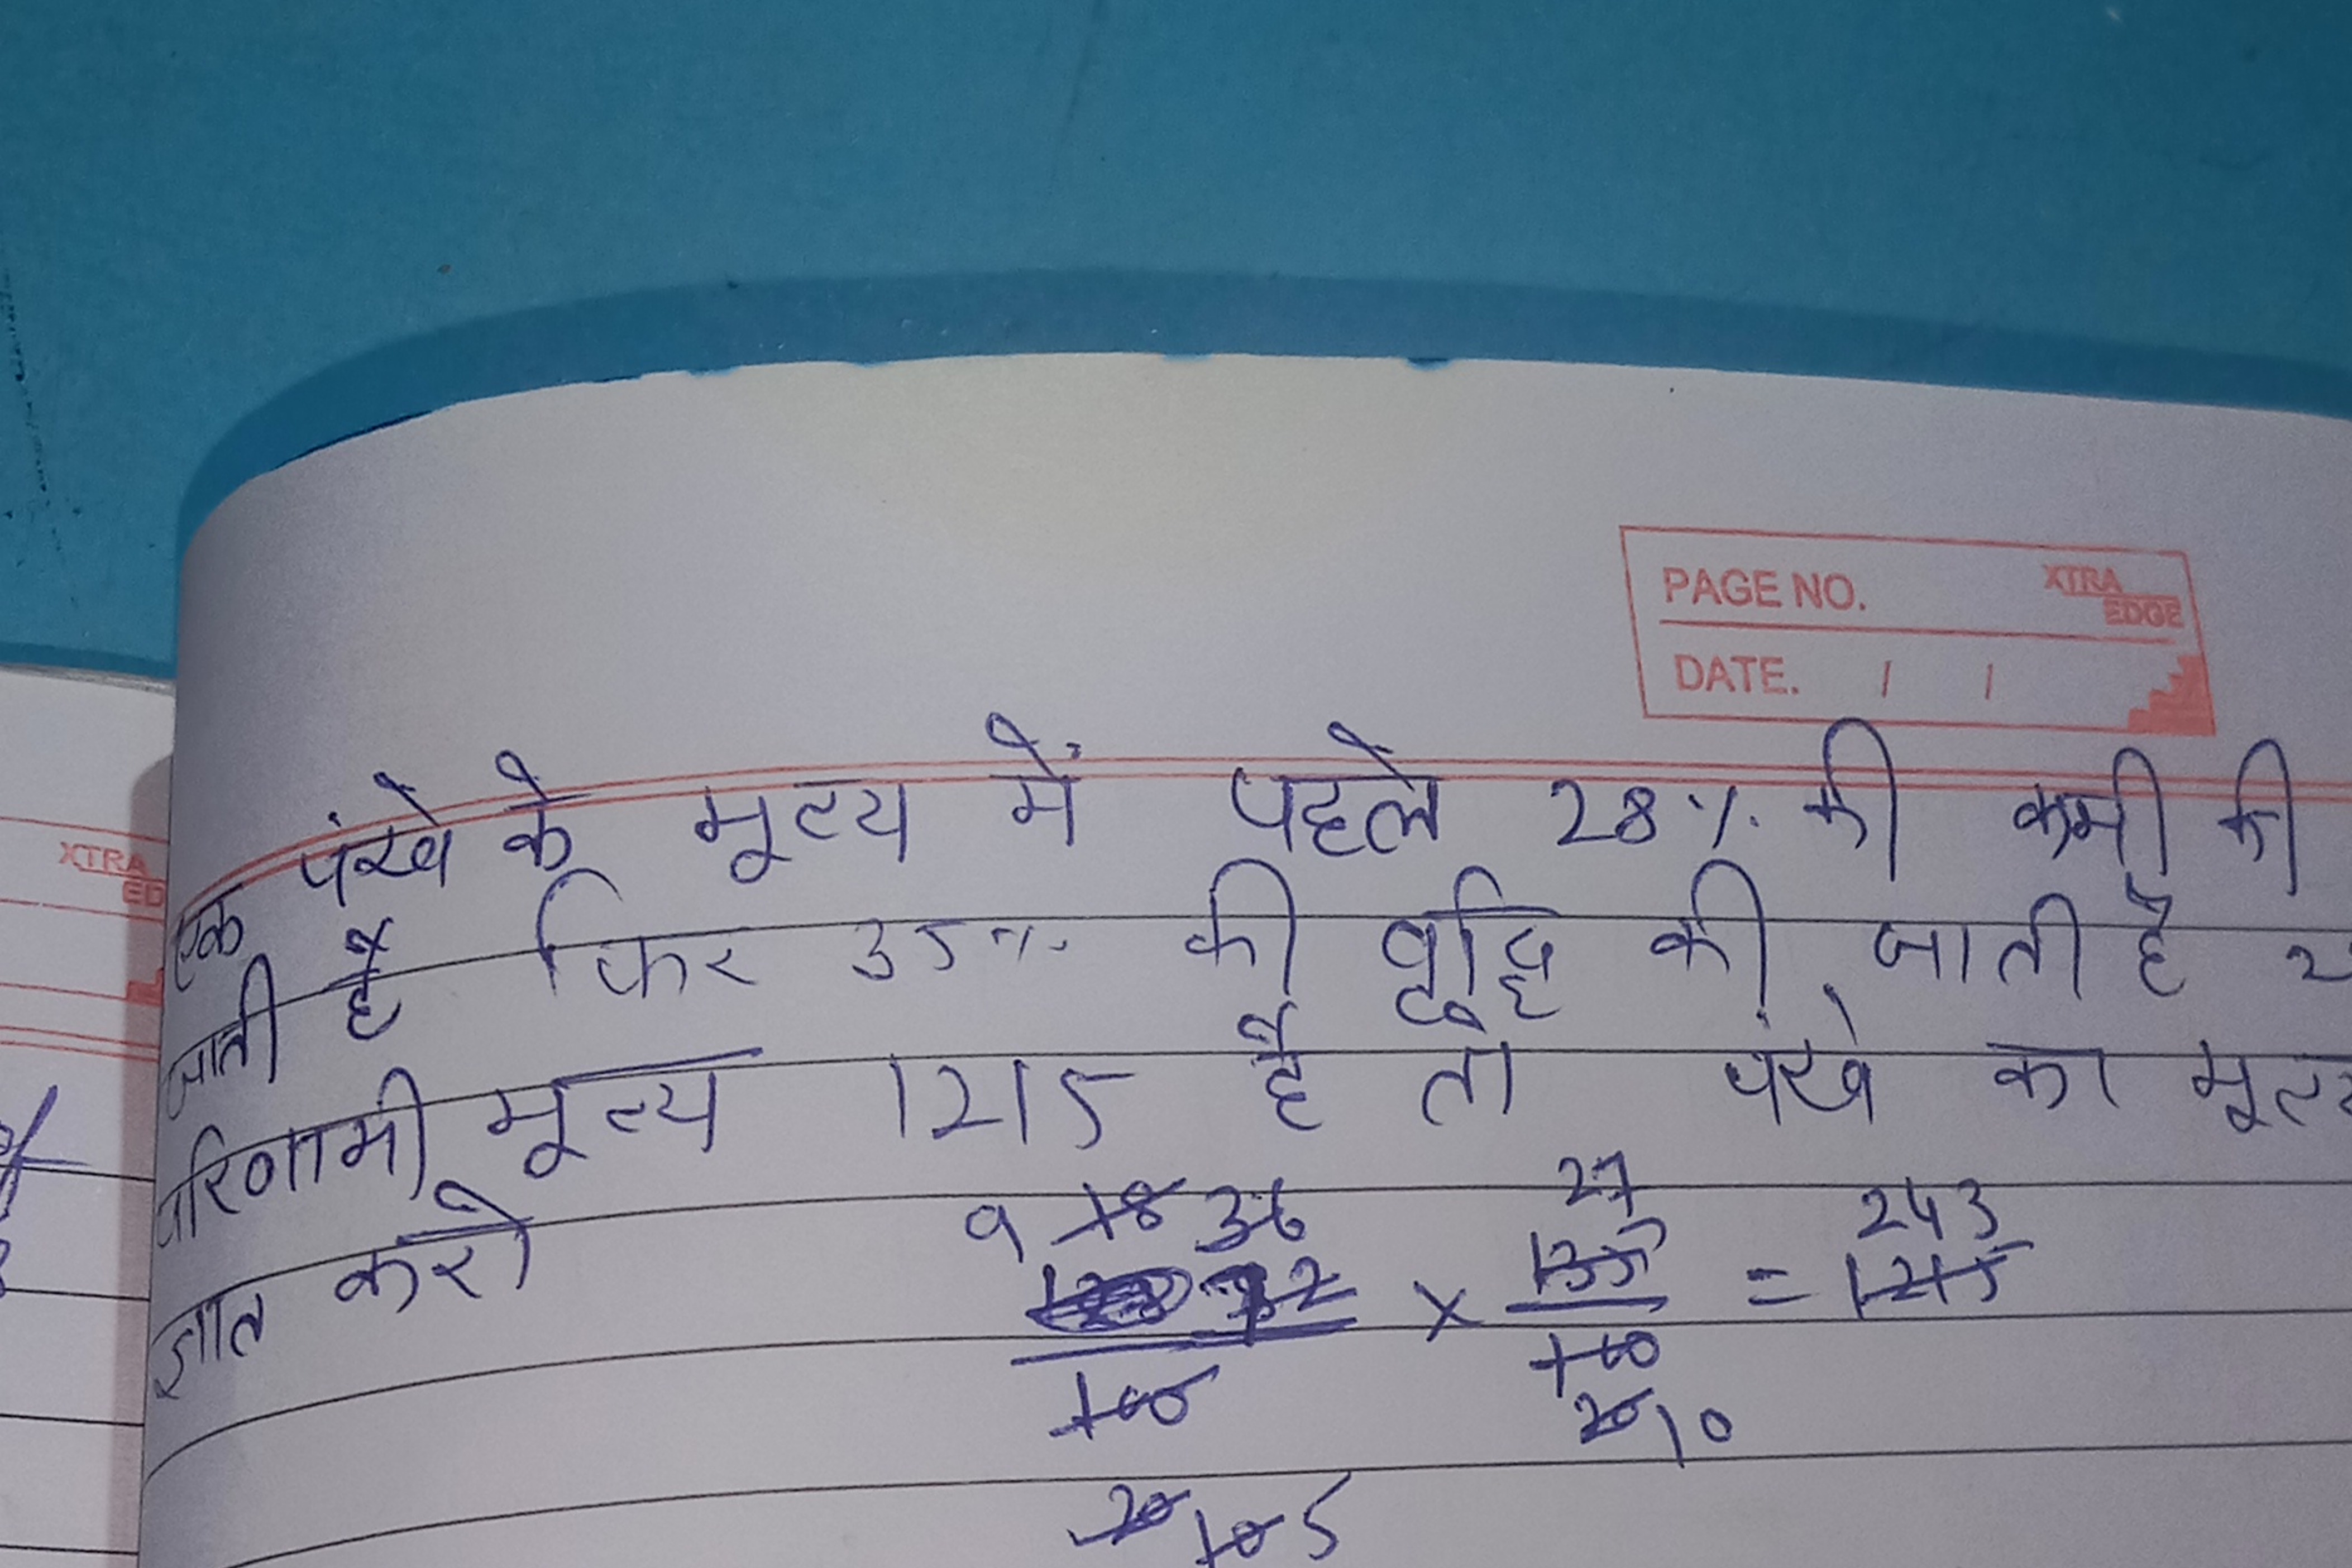 PAGE NO. XTRA EDGE
DATE. / /
एक पंखे के मूल्य में पहले 28% की कमी की
जाती है फिर 35% की वृद्धि की जाती है
परिणामी मूल्य 1215 है तो पंखे का मूल्य
ज्ञात करो
9 18 36 27 243
72 × 135 = 1215
100 100
20 10
20 10 5
XTRA
ED